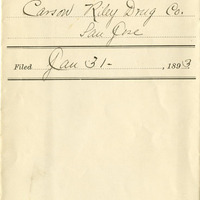 Carson Riley Drug Co.
San Jose
Filed Jan 31- , 1893